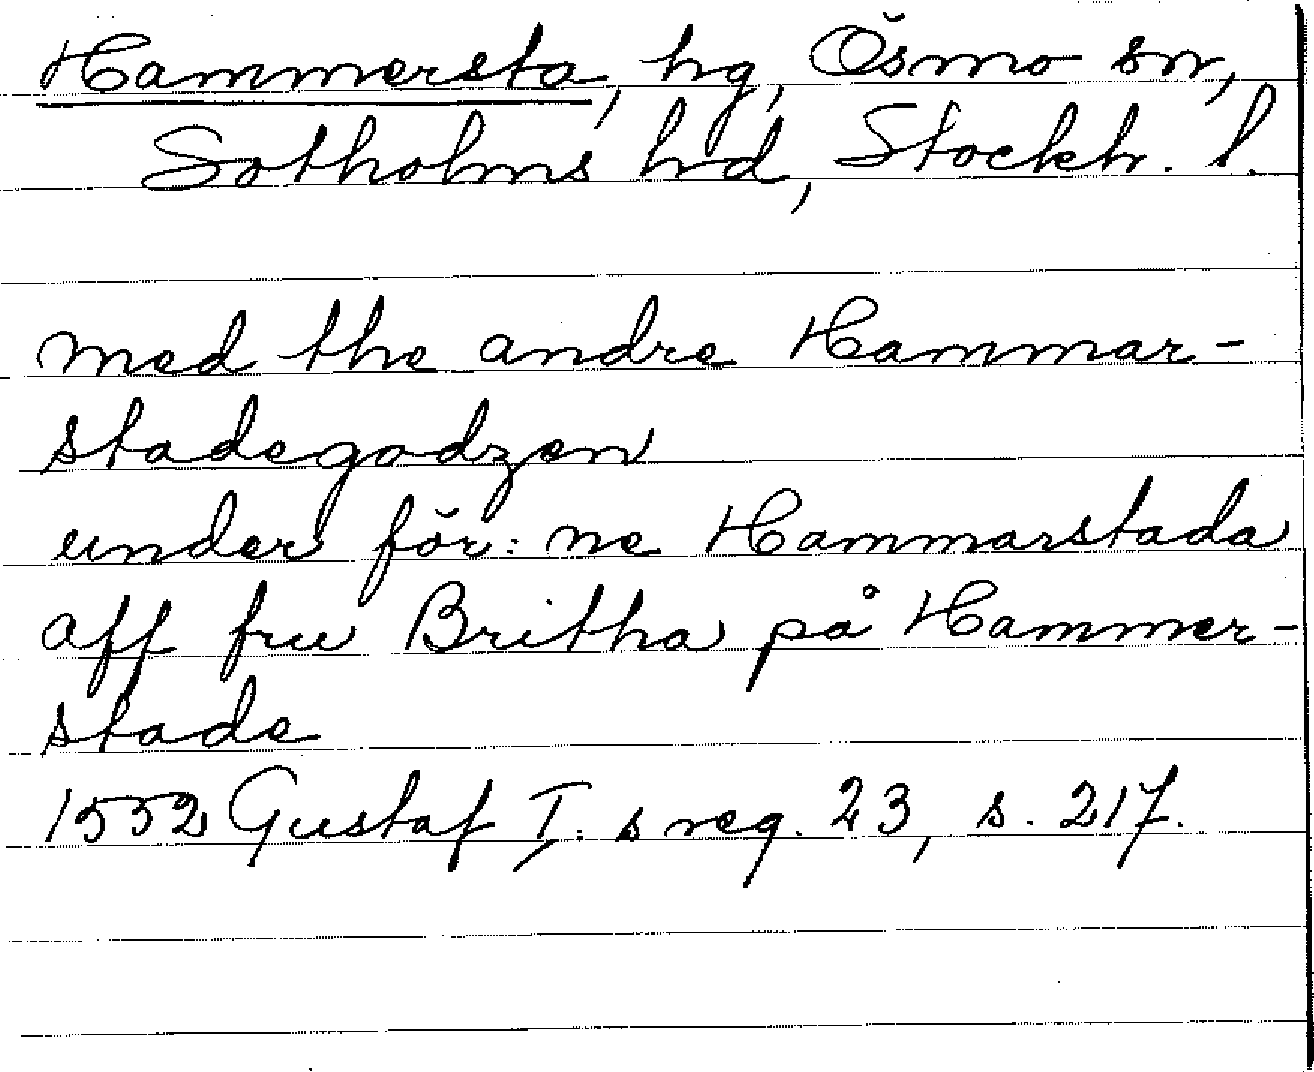 Hammersta, hg, Ösmo sn,
Sotholms hd, Stockh. l.
med the andre Hammar-
stadegodzen
under för: ne Hammarstada
aff fru Britha på Hammer-
stade
1552 Gustaf I: s reg. 23, s. 217.